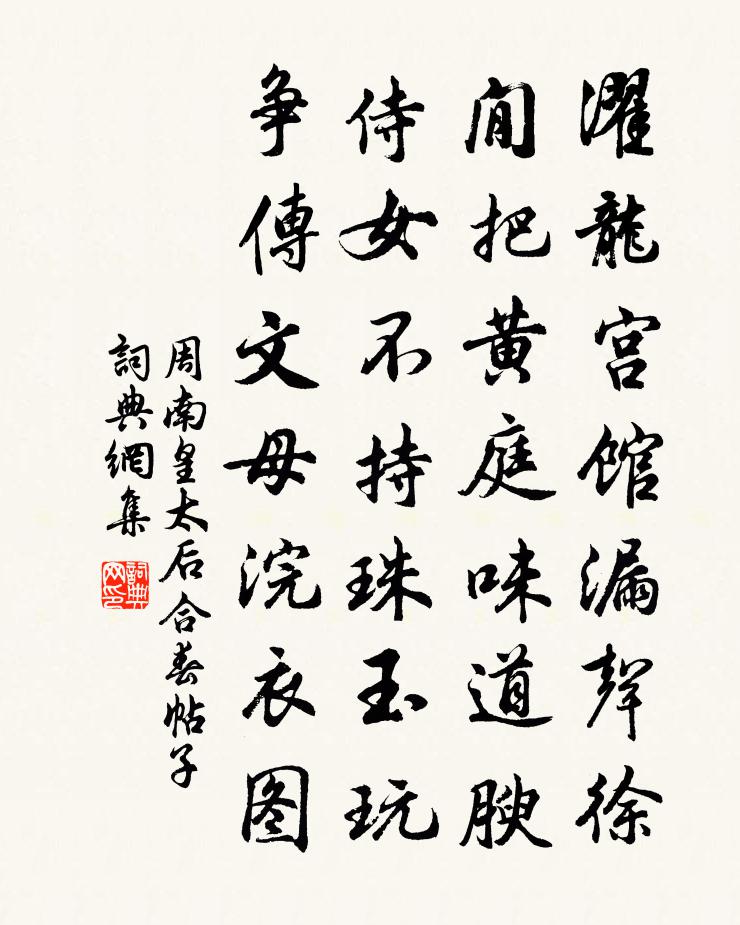 濯龍宮館漏聲徐
閒把黃庭味道腴
侍女不持珠玉玩
争傳文母浣衣图
周南皇太后合春帖子
詞典網集
詞典
网印